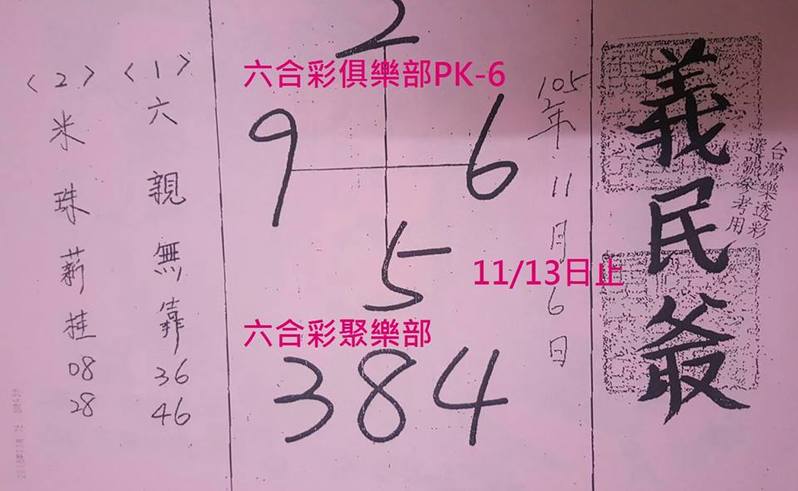 義民爺
台灣樂透彩
選號參考用
105年11月6日
2
六合彩俱樂部PK-6
9 6
5
11/13日止
六合彩聚樂部
384
〈1〉六親無靠 36 46
〈2〉米珠薪桂 08 28